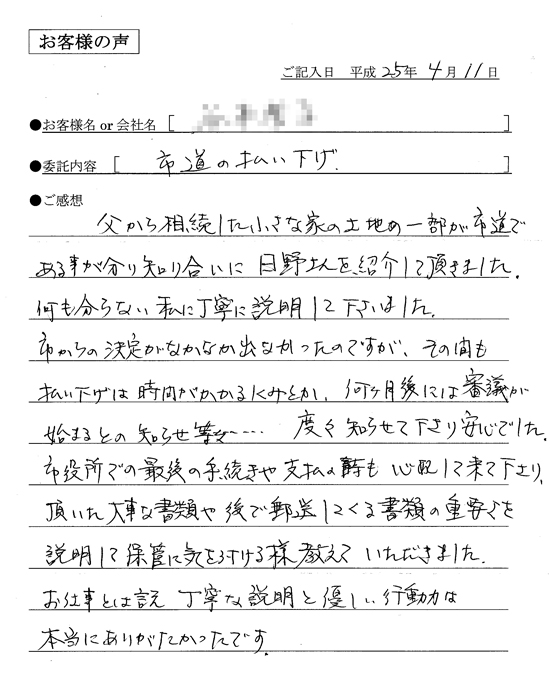 お客様の声
ご記入日 平成25年4月11日
●お客様名 or 会社名 [ ]
●委託内容 [ 市道の払い下げ. ]
●ご感想
父から相続した小さな家の土地の一部が市道で
ある事が分り知り合いに日野さんを紹介して頂きました.
何も分らない私に丁寧に説明して下さいました.
市からの決定がなかなか出なかったのですが、その間も
払い下げは時間がかかるしくみとか、何ヶ月後には審議が
始まるとの知らせ等々…… 度々知らせて下さり安心でした.
市役所での最後の手続きや支払の時も心配して来て下さり、
頂いた大事な書類や後で郵送してくる書類の重要さを
説明して保管に気を付ける様教えていただきました.
お仕事とは言え 丁寧な説明と優しい行動力は
本当にありがたかったです.